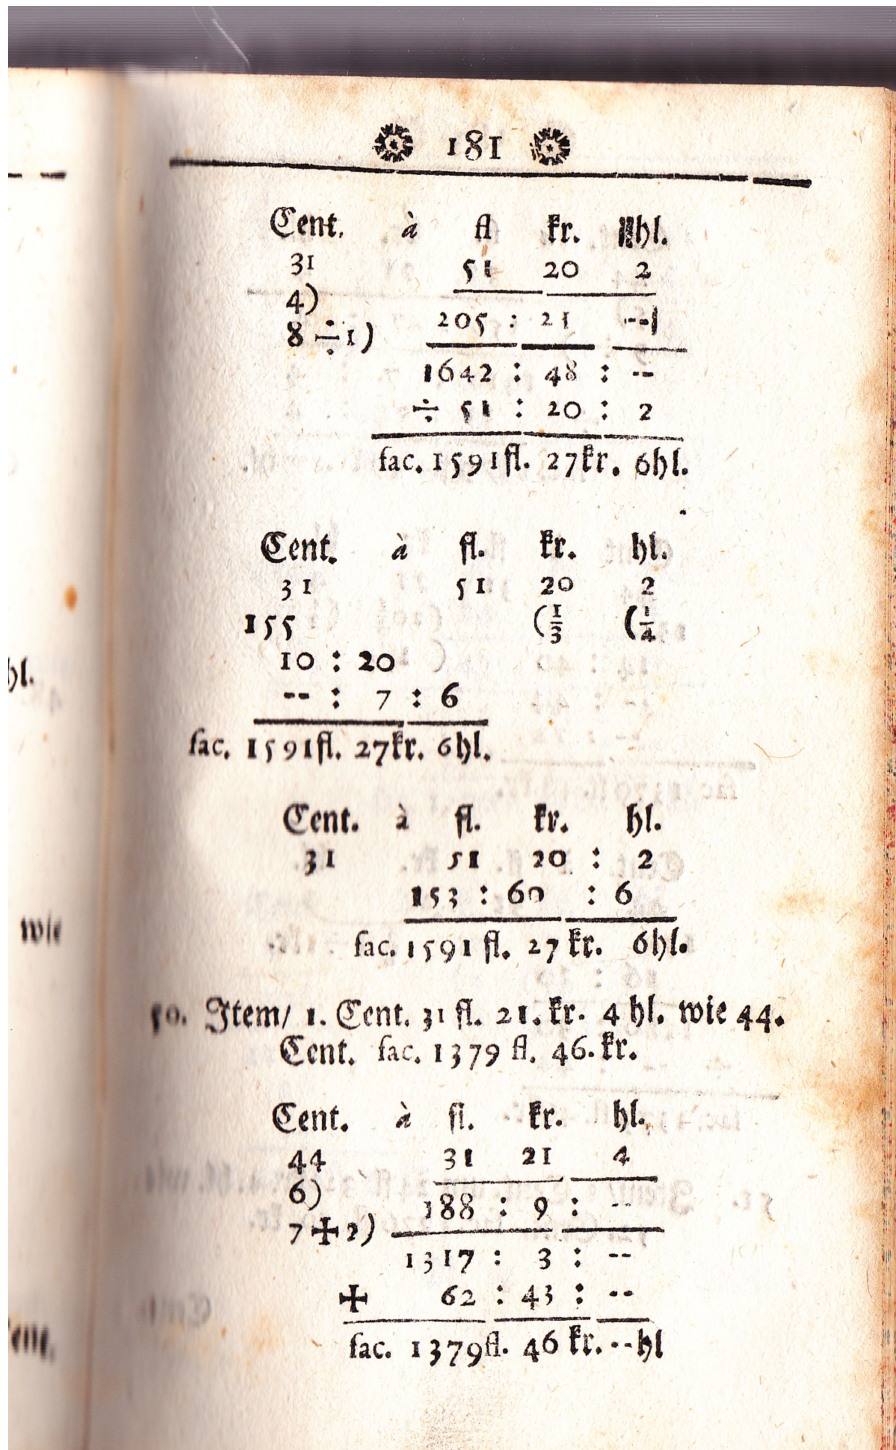 181
Cent. à fl kr. hl.
31 51 20 2
4)
8 ÷ 1) 205 : 21 --
1642 : 48 : --
÷ 51 : 20 : 2
fac. 1591fl. 27kr. 6hl.
Cent. à fl. kr. hl.
31 51 20 2
155 (1/3 (1/4
10 : 20
-- : 7 : 6
fac. 1591fl. 27kr. 6hl.
Cent. à fl. kr. hl.
31 51 20 : 2
153 : 60 : 6
fac. 1591 fl. 27 kr. 6hl.
50. Item/ 1. Cent. 31 fl. 21. kr. 4 hl. wie 44.
Cent. fac. 1379 fl. 46. kr.
Cent. à fl. kr. hl.
44 31 21 4
6)
7 + 2) 188 : 9 : --
1317 : 3 : --
+ 62 : 43 : --
fac. 1379fl. 46 kr. --hl
hl.
wie